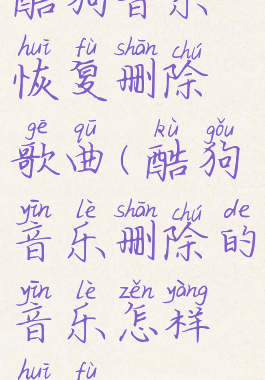 酷狗音乐
huī fù shān chú
恢复删除
gē qū kù gǒu
歌曲(酷狗
yīn lè shān chú de
音乐删除的
yīn lè zěn yàng
音乐怎样
huī fù